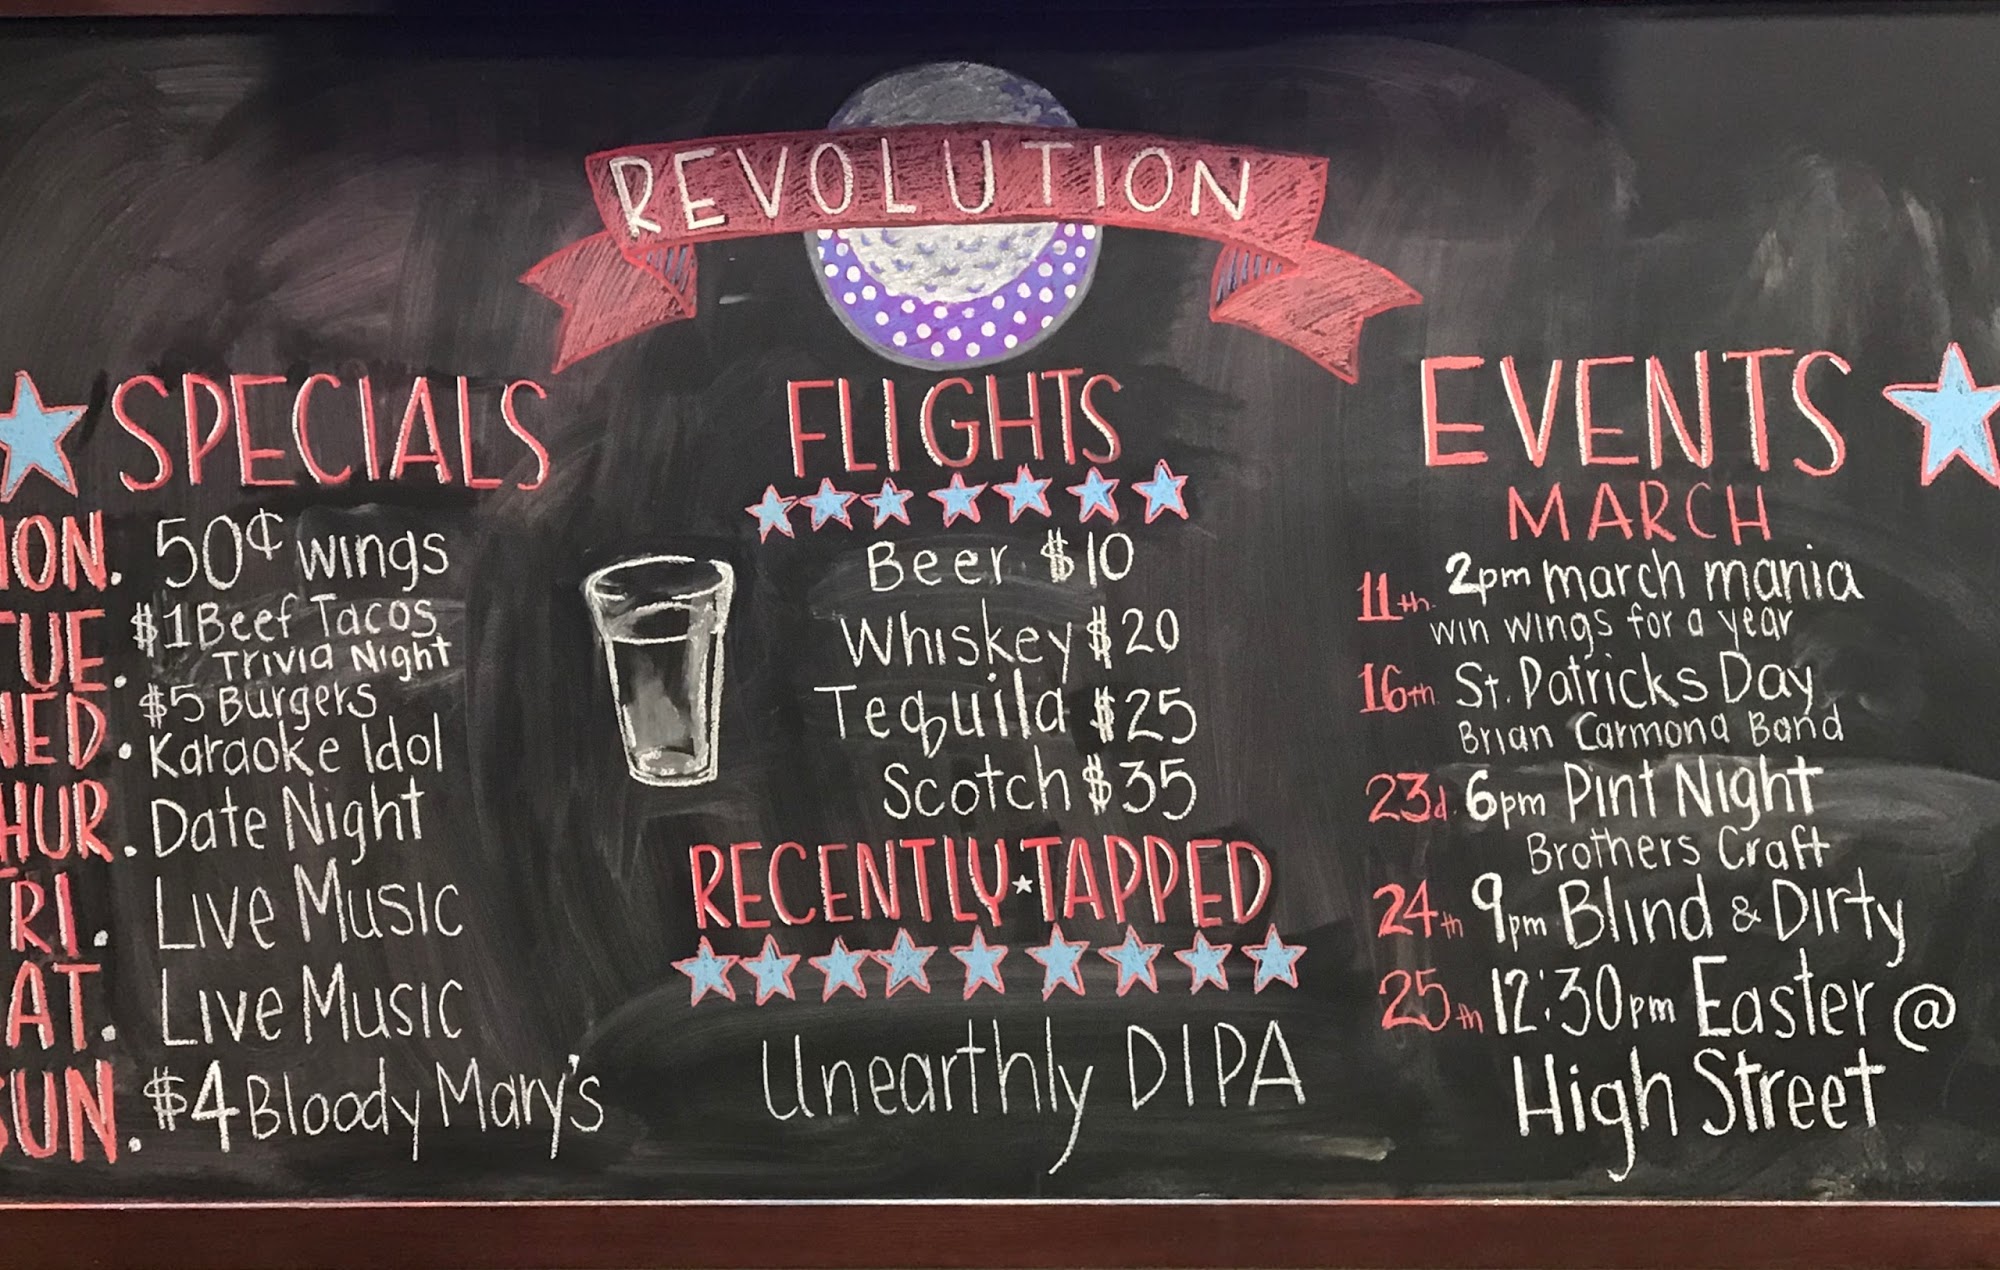 REVOLUTION
SPECIALS
ON. 50¢ wings
TUE. $1 Beef Tacos
Trivia Night
NED. $5 Burgers
Karaoke Idol
HUR. Date Night
RI. Live Music
AT. Live Music
SUN. $4 Bloody Mary's
FLIGHTS
Beer $10
Whiskey $20
Tequila $25
Scotch $35
RECENTLY TAPPED
Unearthly DIPA
EVENTS
MARCH
11th. 2pm march mania
win wings for a year
16th St. Patricks Day
Brian Carmona Band
23d. 6pm Pint Night
Brothers Craft
24th 9pm Blind & Dirty
25th 12:30pm Easter @
High Street